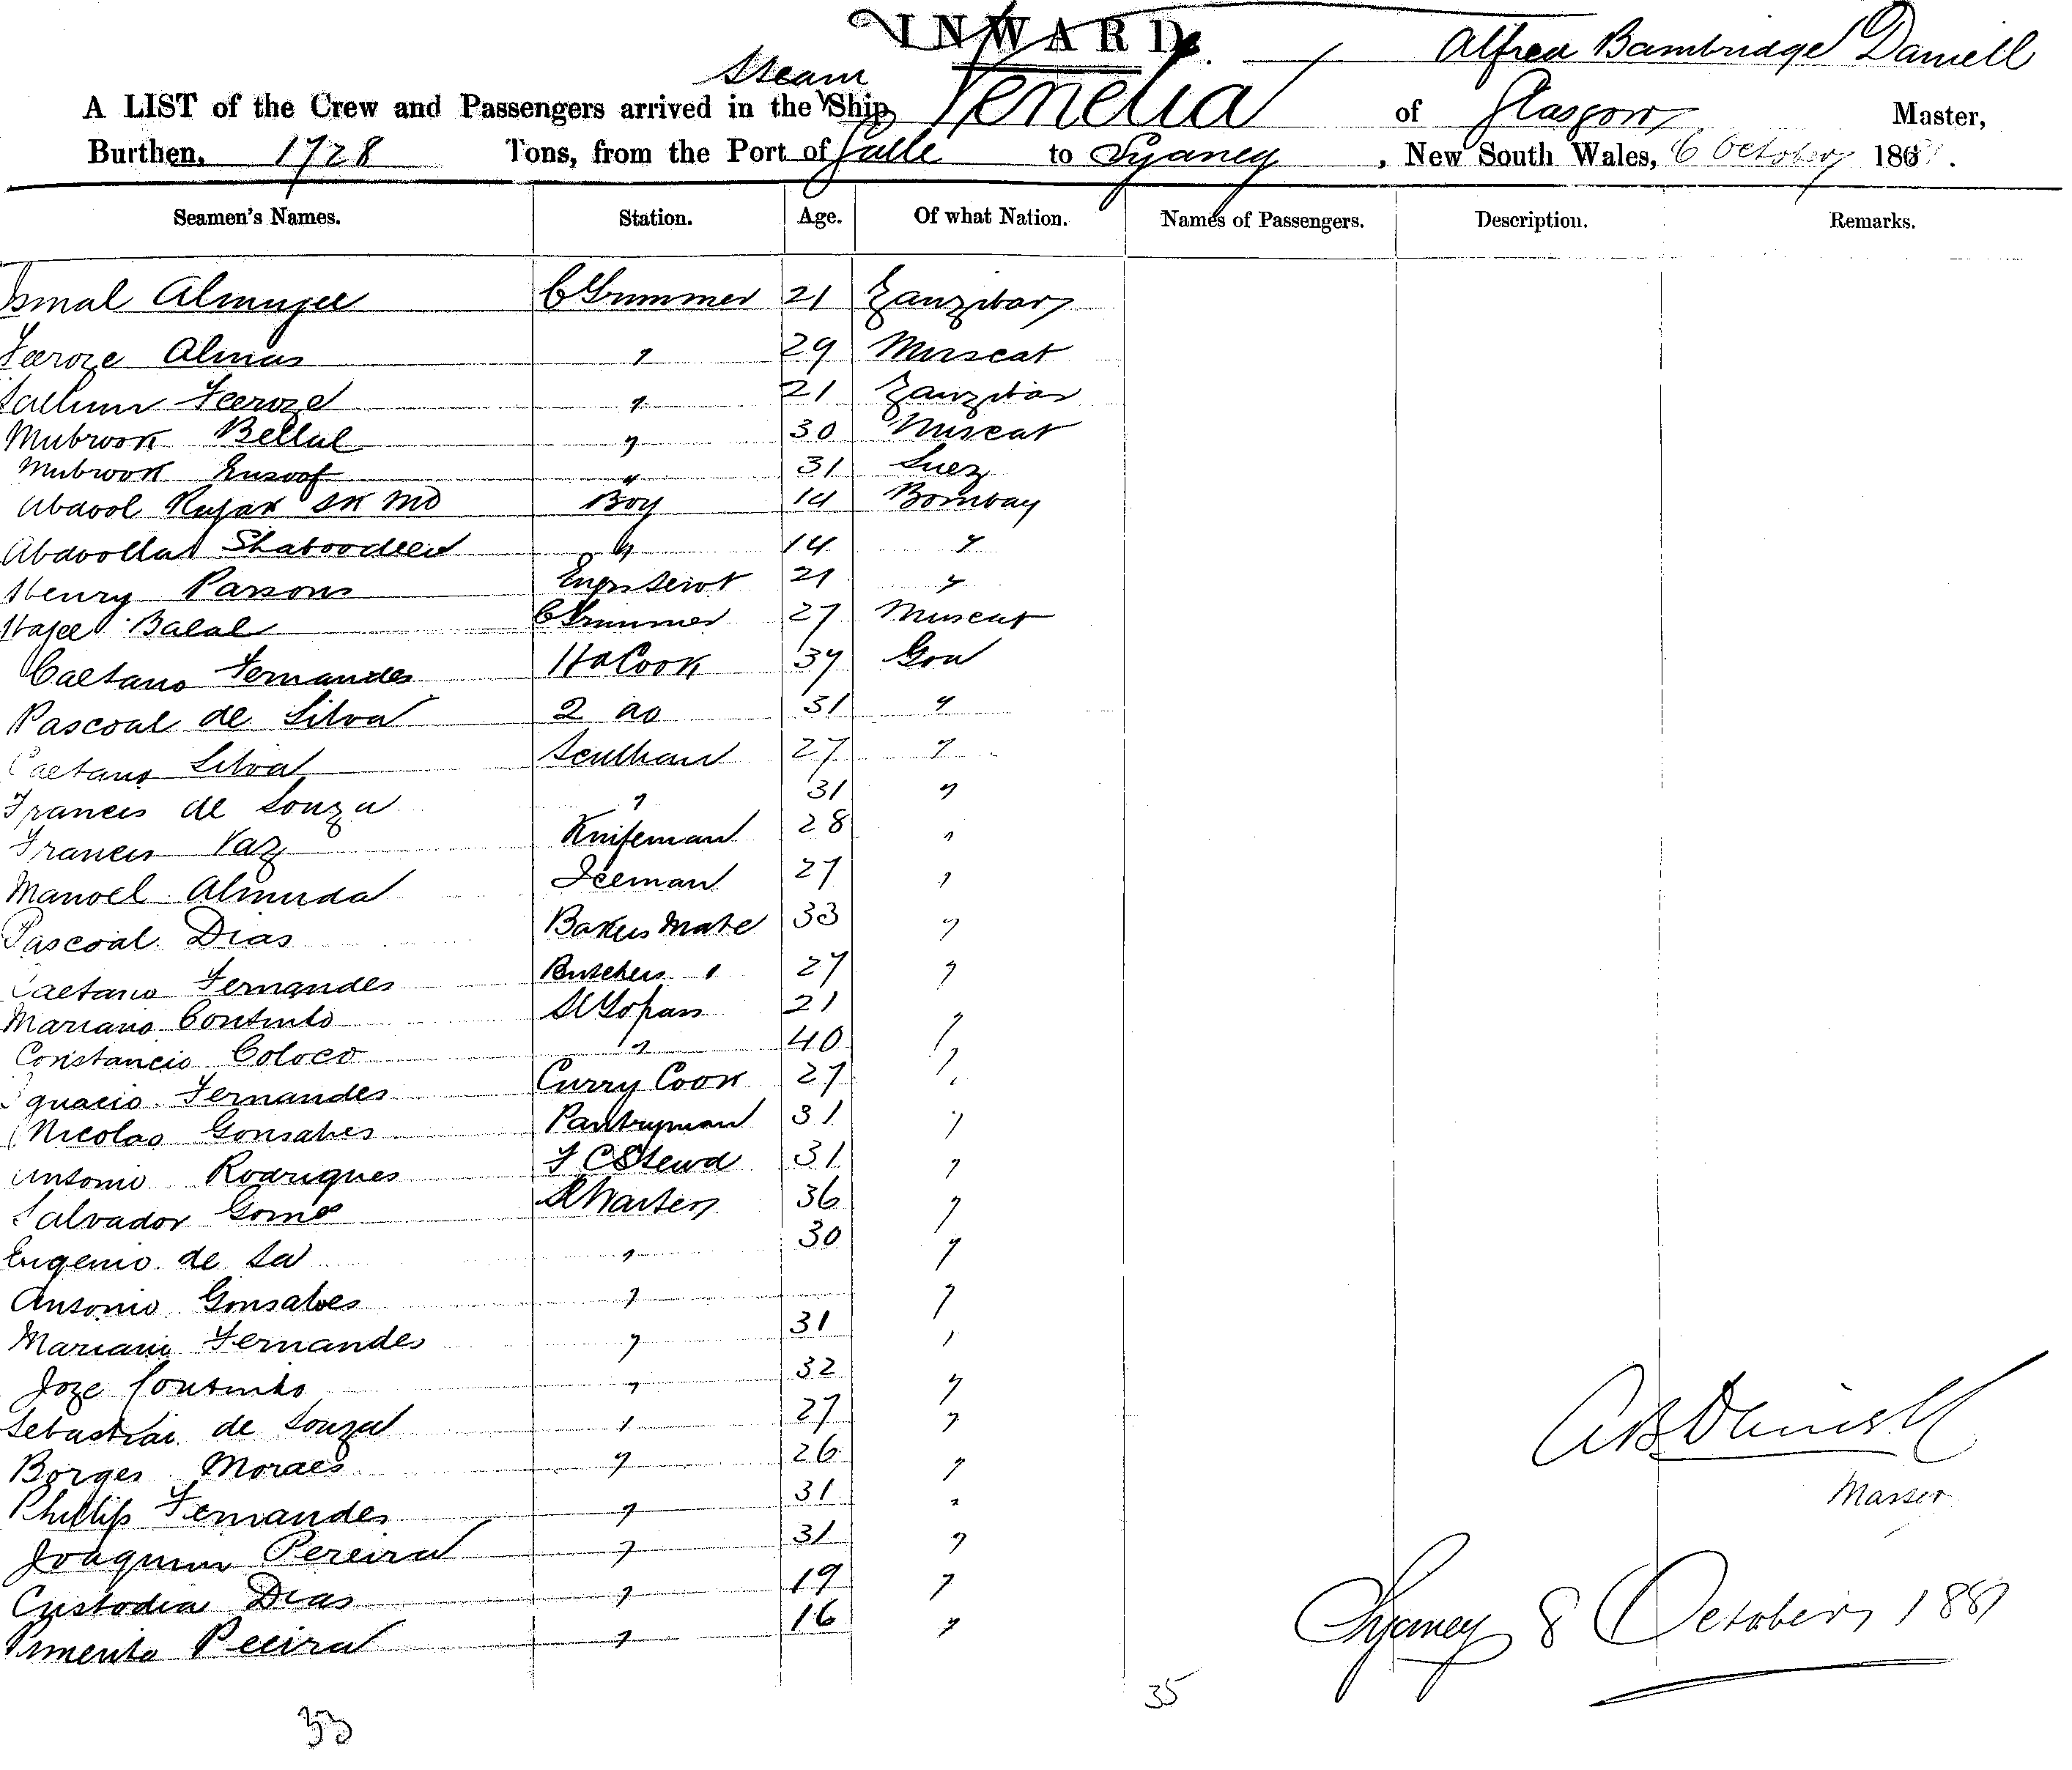 INWARD.
Alfred Bambridge Daniell
Steam
A LIST of the Crew and Passengers arrived in the Ship Venetia of Glasgow Master,
Burthen, 1728 Tons, from the Port of Galle to Sydney, New South Wales, 6 October 188
Seamen's Names. Station. Age. Of what Nation. Names of Passengers. Description. Remarks.
Ismal Almajee C Trimmer 21 Zanzibar
Feeroze Almas " 29 Muscat
Sallim Feeroze " 21 Zanzibar
Mubrook Bellal " 30 Muscat
Mubrook Eusoof " 31 Suez
Abdool Rujak SK Md Boy 14 Bombay
Abdoolla Shaboodeen " 14 "
Henry Parsons Engrs Servt 21 "
Hajee Balal C Trimmer 27 Muscat
Caetano Fernandes Hd Cook 37 Goa
Pascoal de Silva 2 do 31 "
Caetano Silva 27 "
Francis de Souza " 31 "
Francis Vaz Knifeman 28 "
Manoel Almuda Iceman 27 "
Pascoal Dias Bakers Mate 33 "
Caetano Fernandes Butchers " 27 "
Mariano Coutinho 21 "
Constancio Coloco " 40 "
Ignacio Fernandes Curry Cook 27 "
Nicolao Gonsalves Pantryman 31 "
Antonio Rodrigues F C Stewd 31 "
Salvador Gomes 36 "
Eugenio de Sa " 30 "
Antonio Gonsalves " "
Mariano Fernandes " 31 "
Joze Coutinho " 32 "
Sebastiao de Souza " 27 "
Borges Moraes " 26 "
Phillip Fernandes " 31 "
Joaquim Pereira " 31 "
Custodia Dias " 19 "
Pimenta Pereira " 16 "
AB Daniell
Master
Sydney 8 October 1881
35
33